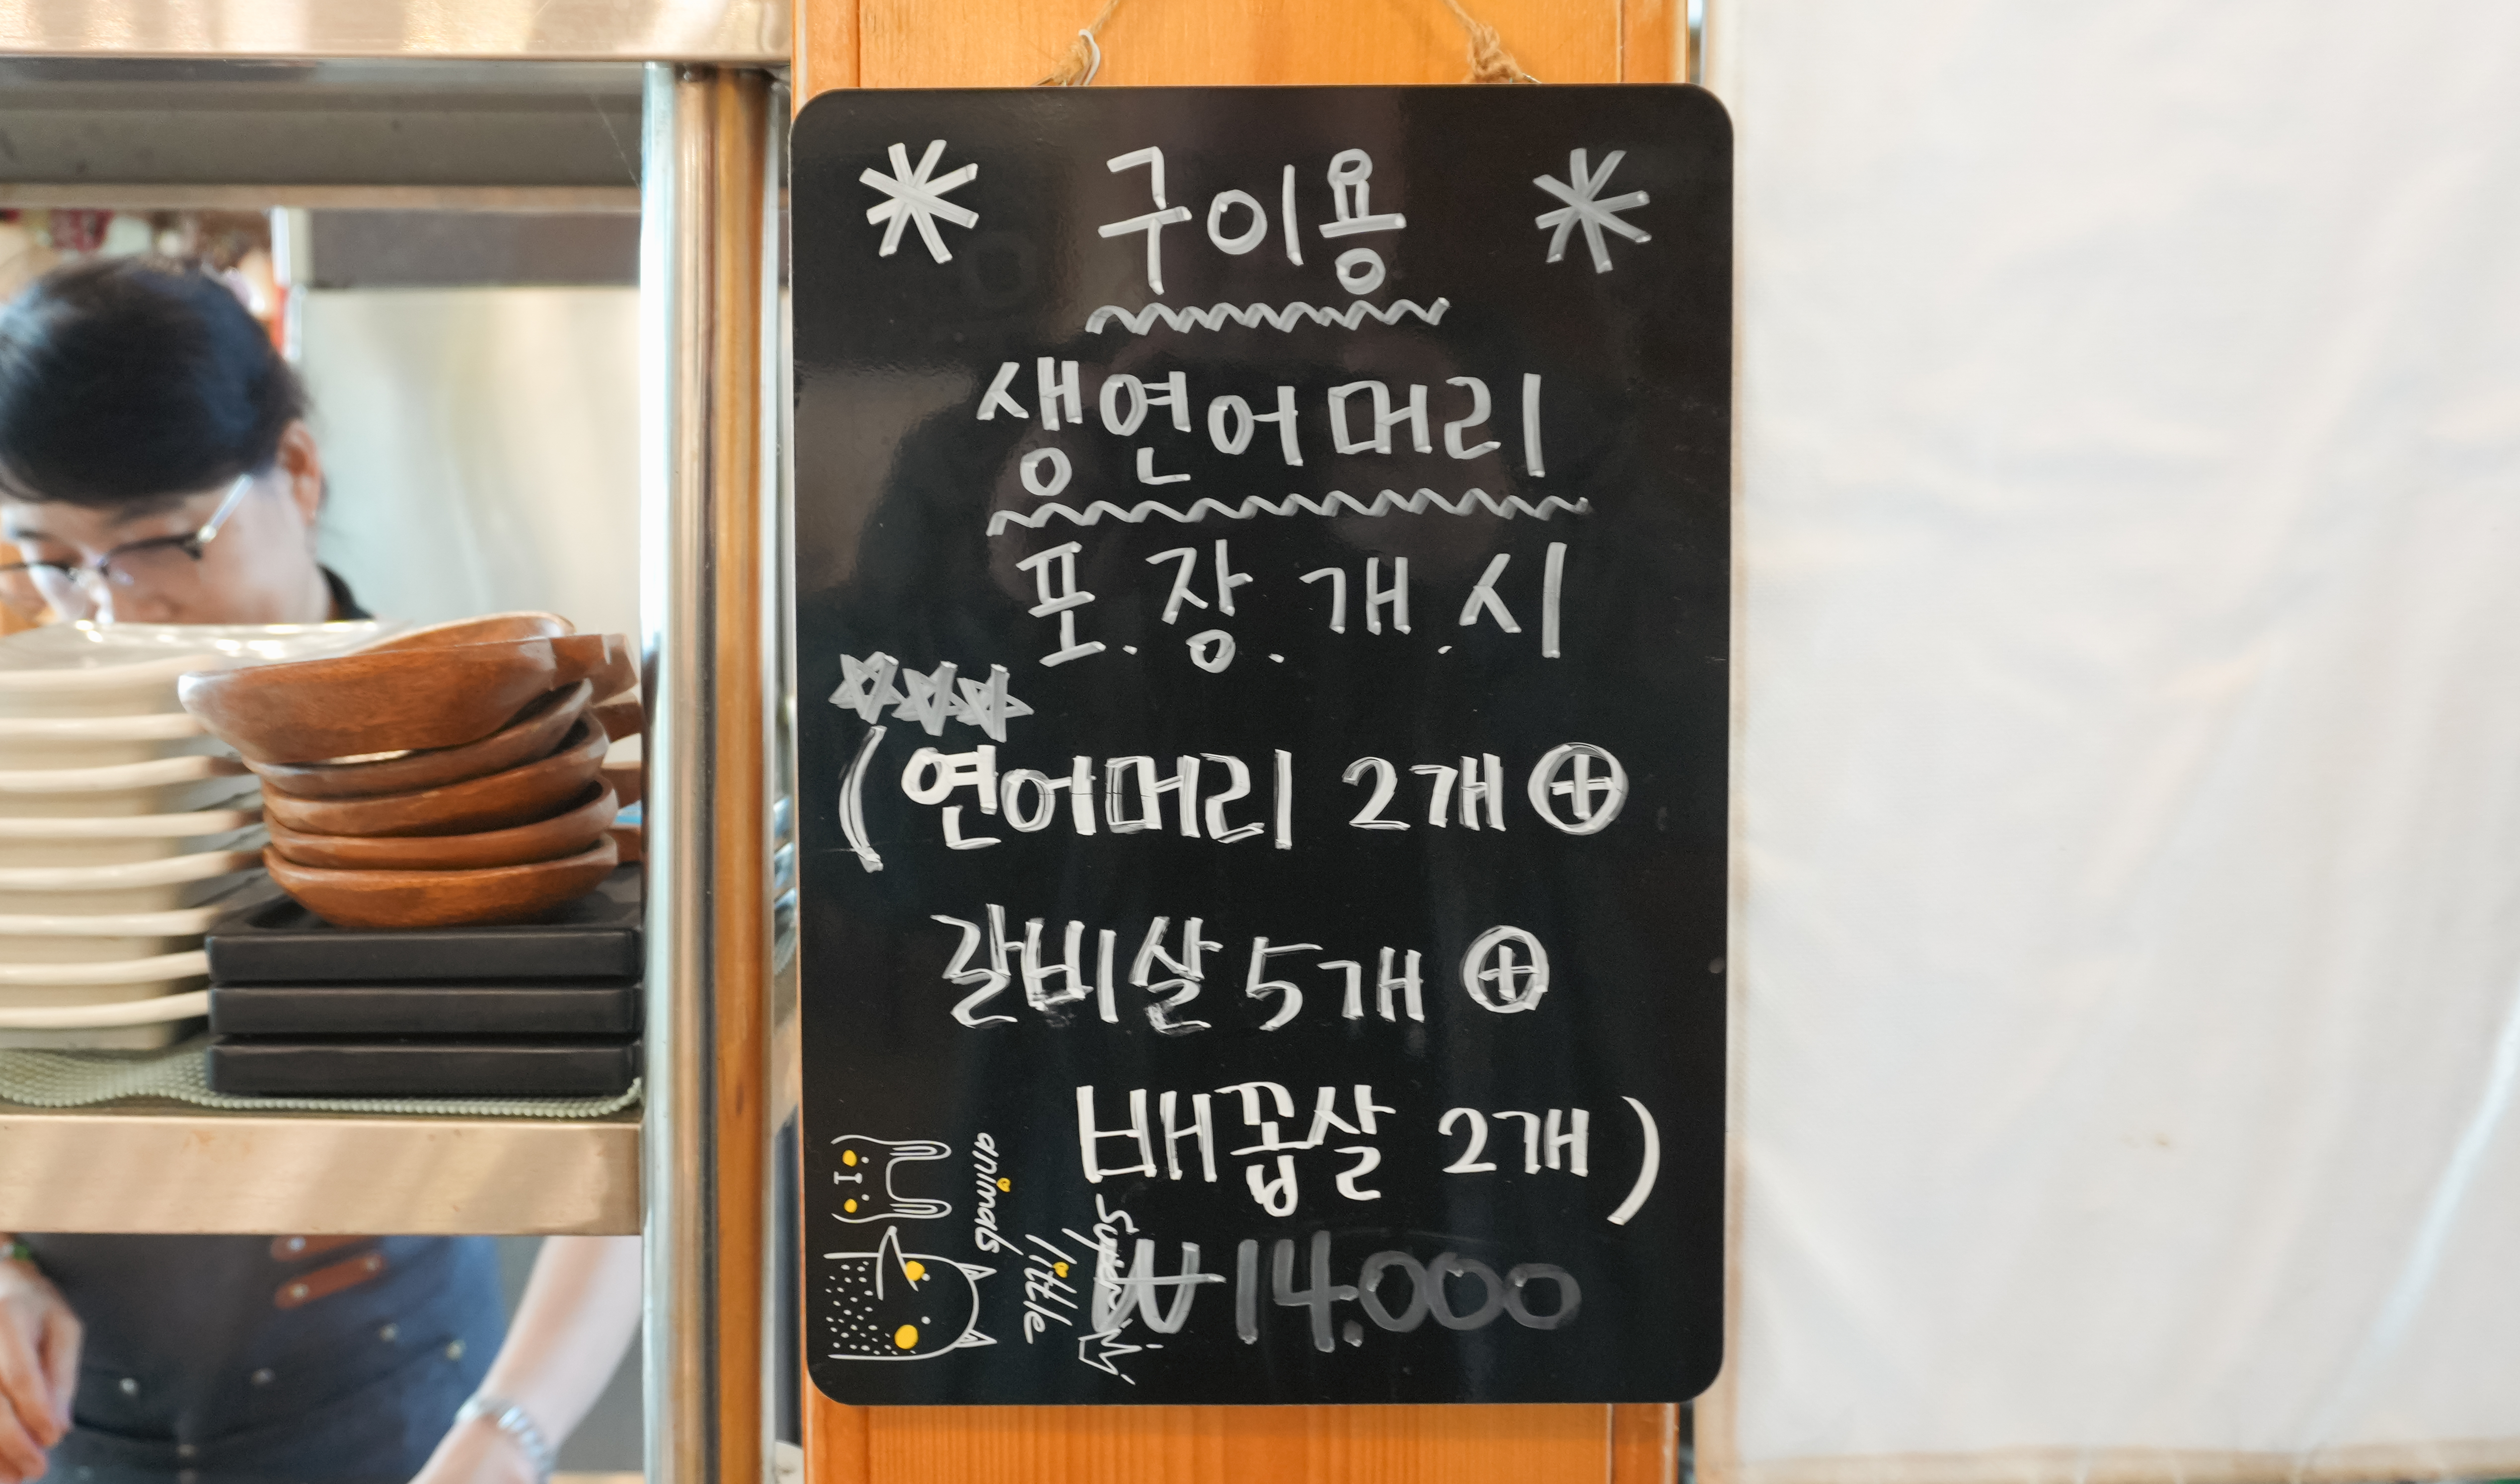 구이용
생연어머리
포.장.개.시
(연어머리 2개 ⊕
갈비살 5개 ⊕
배꼽살 2개)
₩14.000
super
little
animals